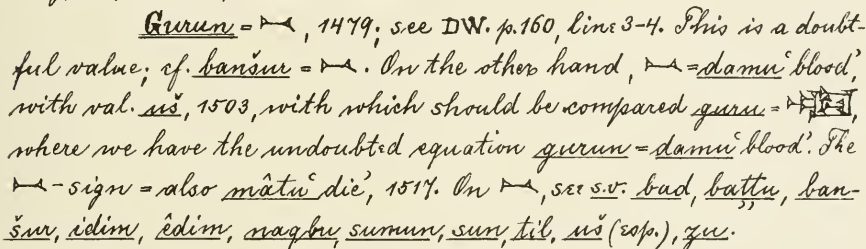 Gurun = 𒁁, 1479; see DW. p.160, line 3-4. This is a doubt-
ful value; cf. banšur = 𒁁. On the other hand, 𒁁 = damu ‘blood’,
with val. uš, 1503, with which should be compared guru =
where we have the undoubted equation gurun = damu ‘blood’. The
𒁁-sign = also mâtu ‘die’, 1517. On 𒁁, see s.v. bad, battu, ban-
šur, idim, êdim, nagbu, sumun, sun, til, uš (esp.), zu.